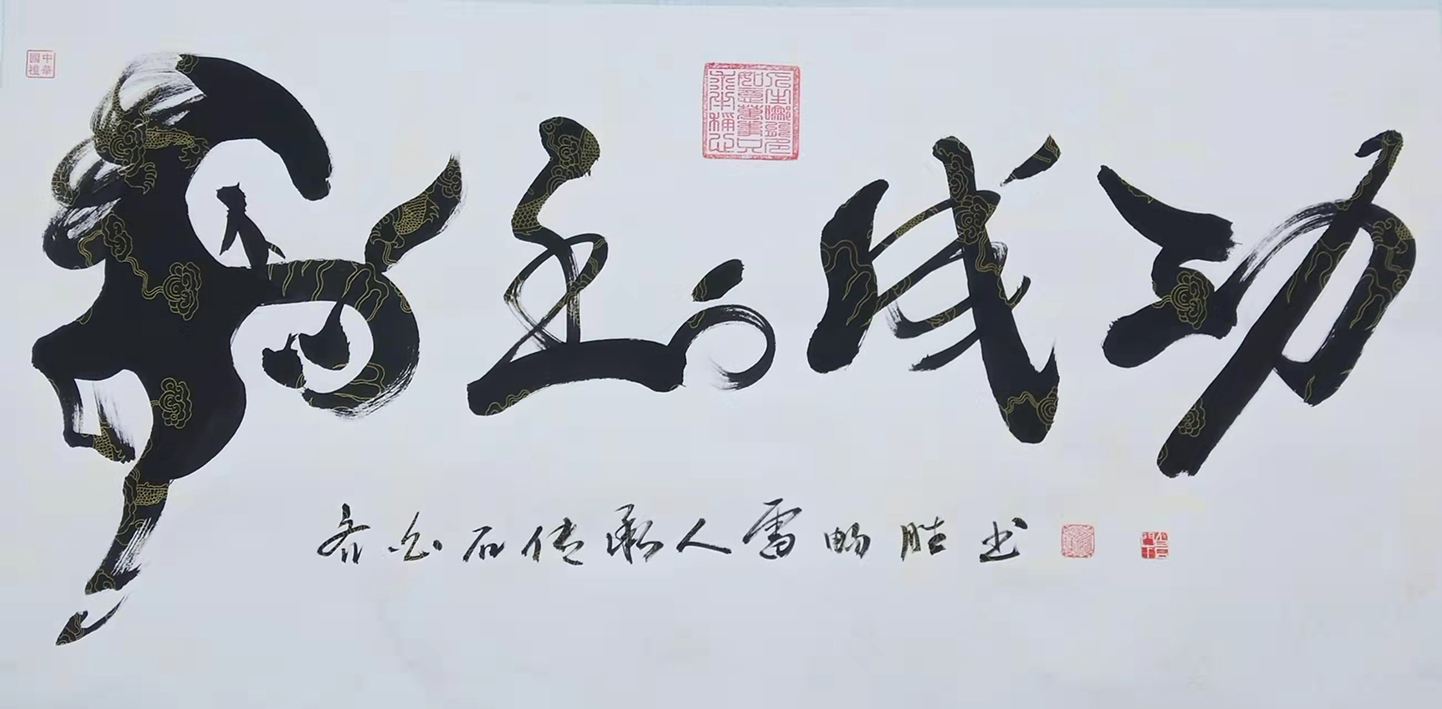 中華國禮
马到成功
齐白石传承人雷畅胜书